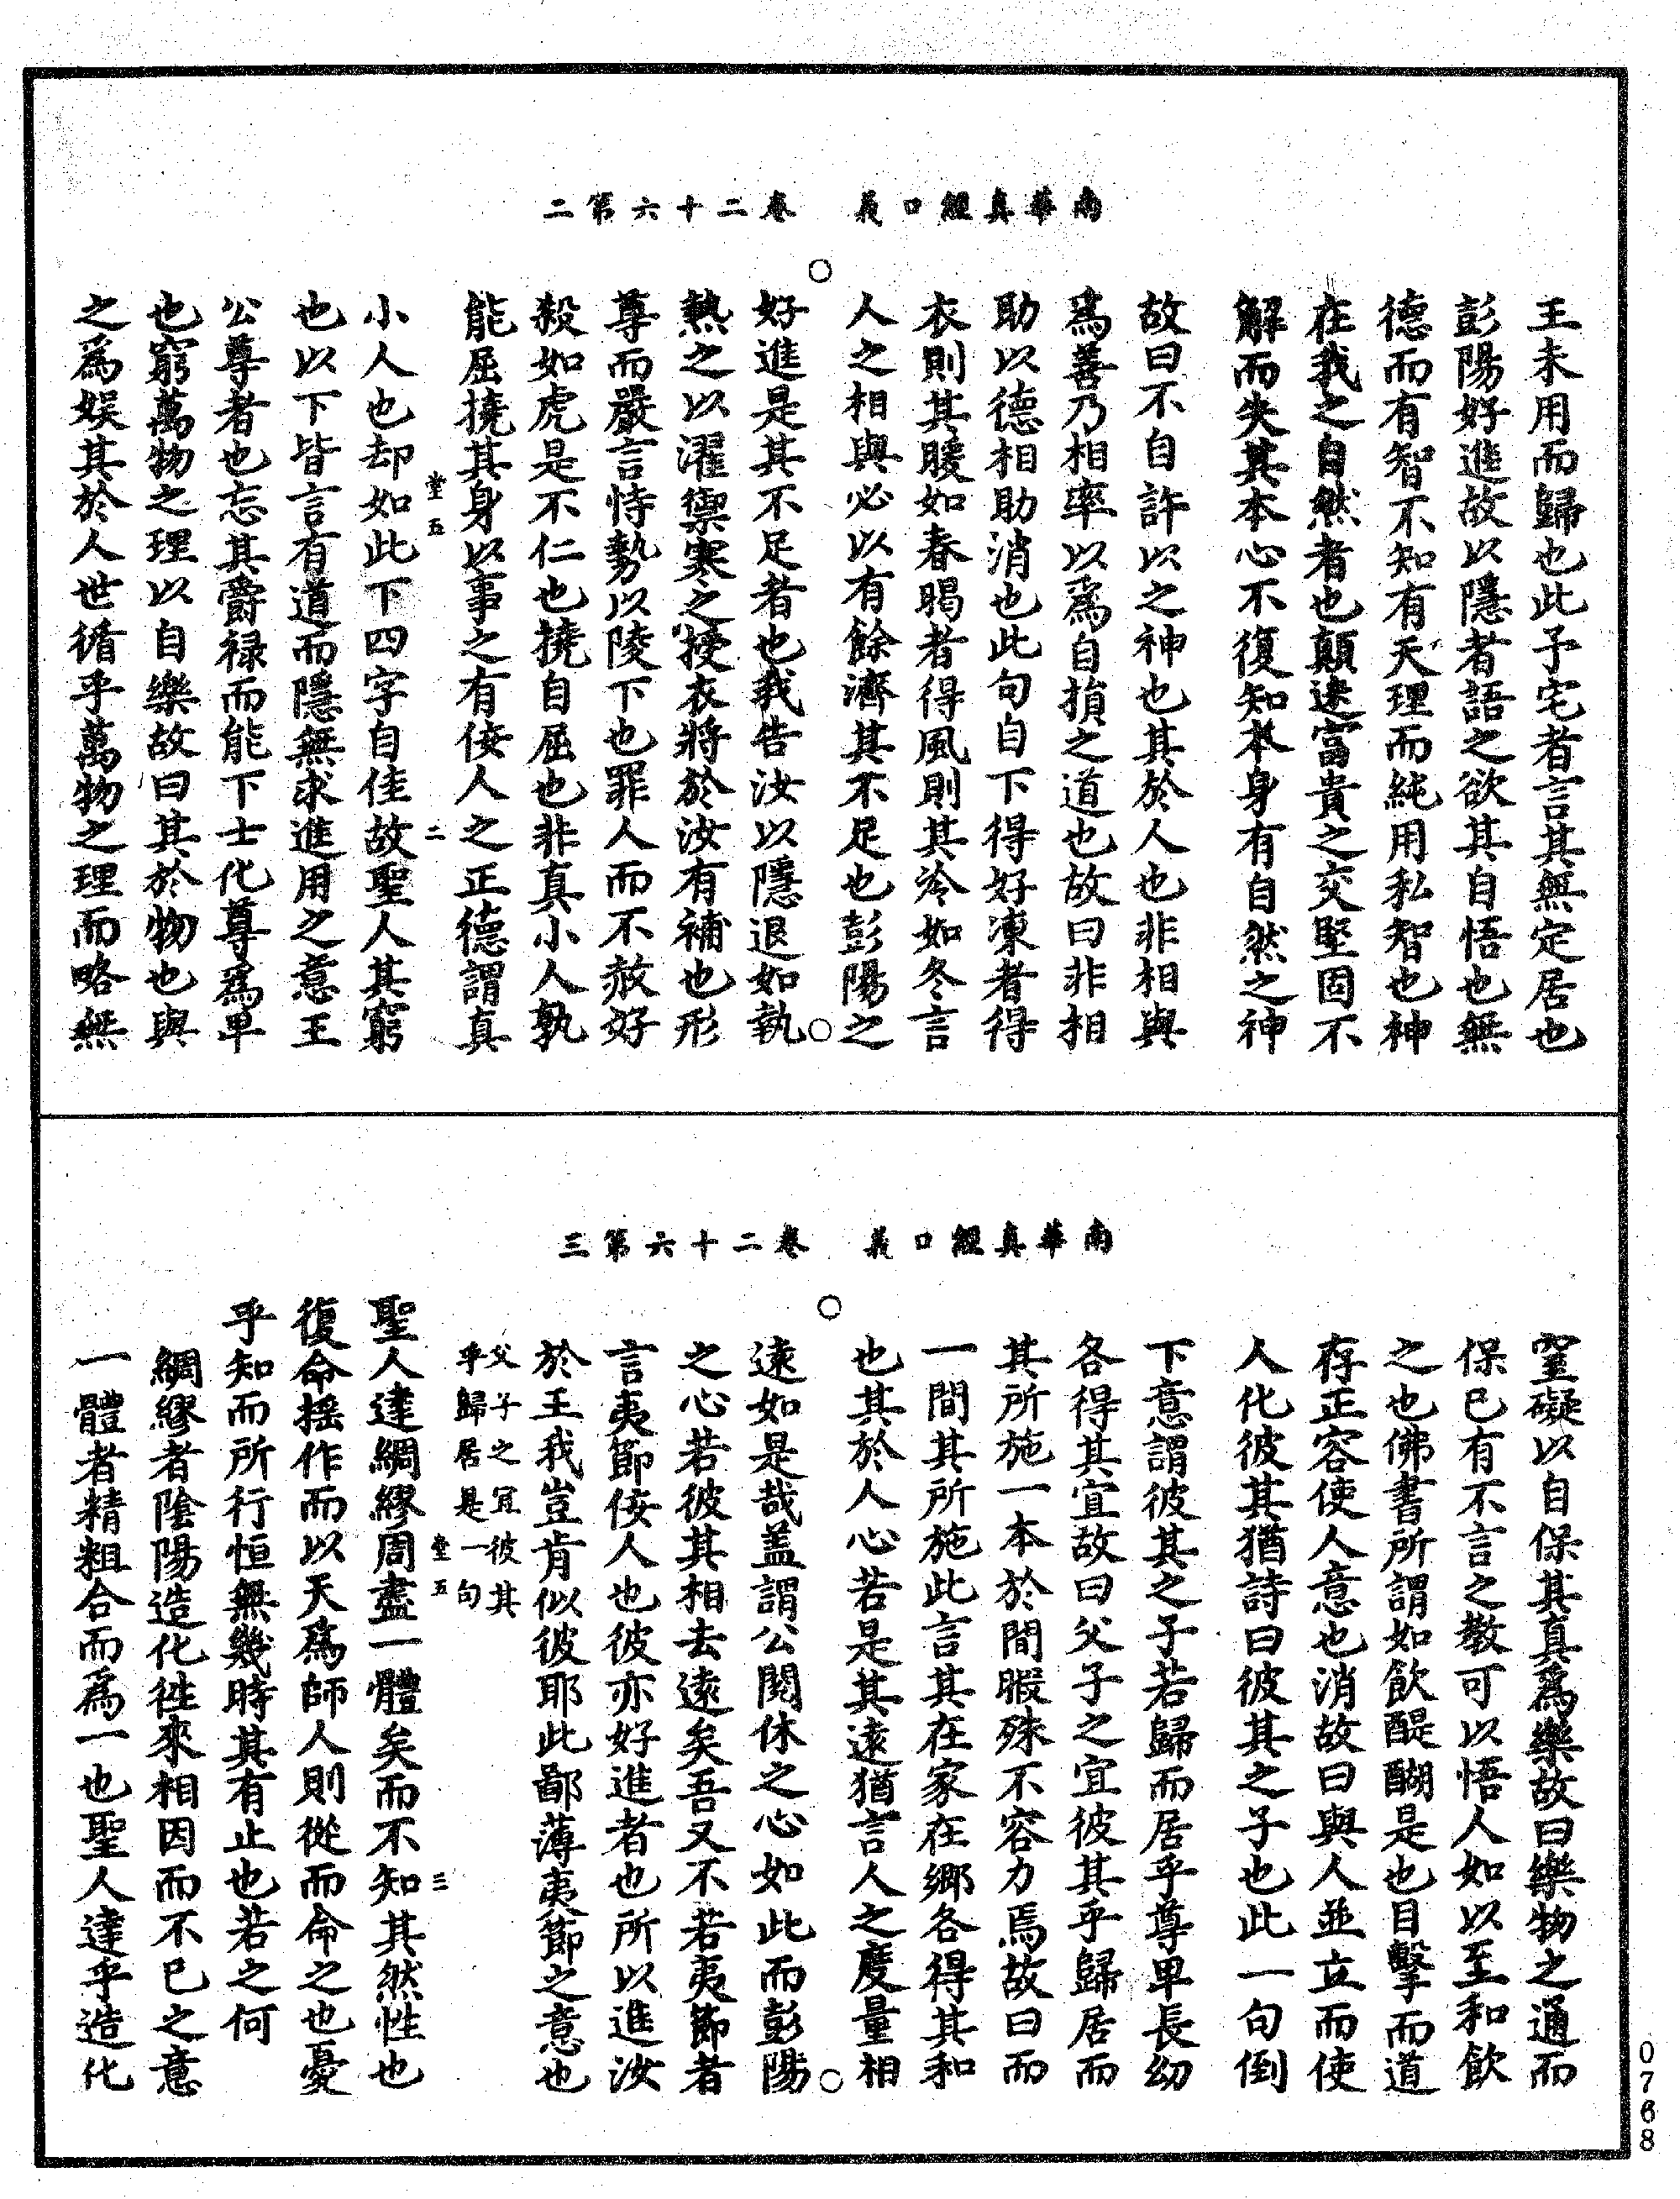 南華真經口義　卷二十六第二
王未用而歸也此予宅者言其無定居也
彭陽好進故以隱者語之欲其自悟也無
德而有智不知有天理而純用私智也神
在我之自然者也顛迷富貴之交堅固不
解而失其本心不復知本身有自然之神
故曰不自許以之神也其於人也非相與
爲善乃相率以爲自損之道也故曰非相
助以德相助消也此句自下得好凍者得
衣則其暖如春暍者得風則其冷如冬言
人之相與必以有餘濟其不足也彭陽之
好進是其不足者也我告汝以隱退如執
熱之以濯禦寒之授衣將於汝有補也形
尊而嚴言恃勢以陵下也罪人而不赦好
殺如虎是不仁也撓自屈也非真小人孰
能屈撓其身以事之有佞人之正德謂真
堂五　二
小人也却如此下四字自佳故聖人其窮
也以下皆言有道而隱無求進用之意王
公尊者也忘其爵禄而能下士化尊爲卑
也窮萬物之理以自樂故曰其於物也與
之爲娱其於人世循乎萬物之理而略無
南華真經口義　卷二十六第三
窒礙以自保其真爲樂故曰樂物之通而
保已有不言之教可以悟人如以至和飲
之也佛書所謂如飲醍醐是也目擊而道
存正容使人意也消故曰與人並立而使
人化彼其猶詩曰彼其之子也此一句倒
下意謂彼其之子若歸而居乎尊卑長幼
各得其宜故曰父子之宜彼其乎歸居而
其所施一本於間暇殊不容力焉故曰而
一間其所施此言其在家在鄉各得其和
也其於人心若是其遠猶言人之度量相
遠如是哉盖謂公閱休之心如此而彭陽
之心若彼其相去遠矣吾又不若夷節者
言夷節佞人也彼亦好進者也所以進汝
於王我豈肯似彼耶此鄙薄夷節之意也
父子之冝彼其
乎歸居是一句
堂五　三
聖人達綢繆周盡一體矣而不知其然性也
復命摇作而以天爲師人則從而命之也憂
乎知而所行恒無幾時其有止也若之何
綢繆者陰陽造化徃來相因而不已之意
一體者精粗合而爲一也聖人達乎造化
0768